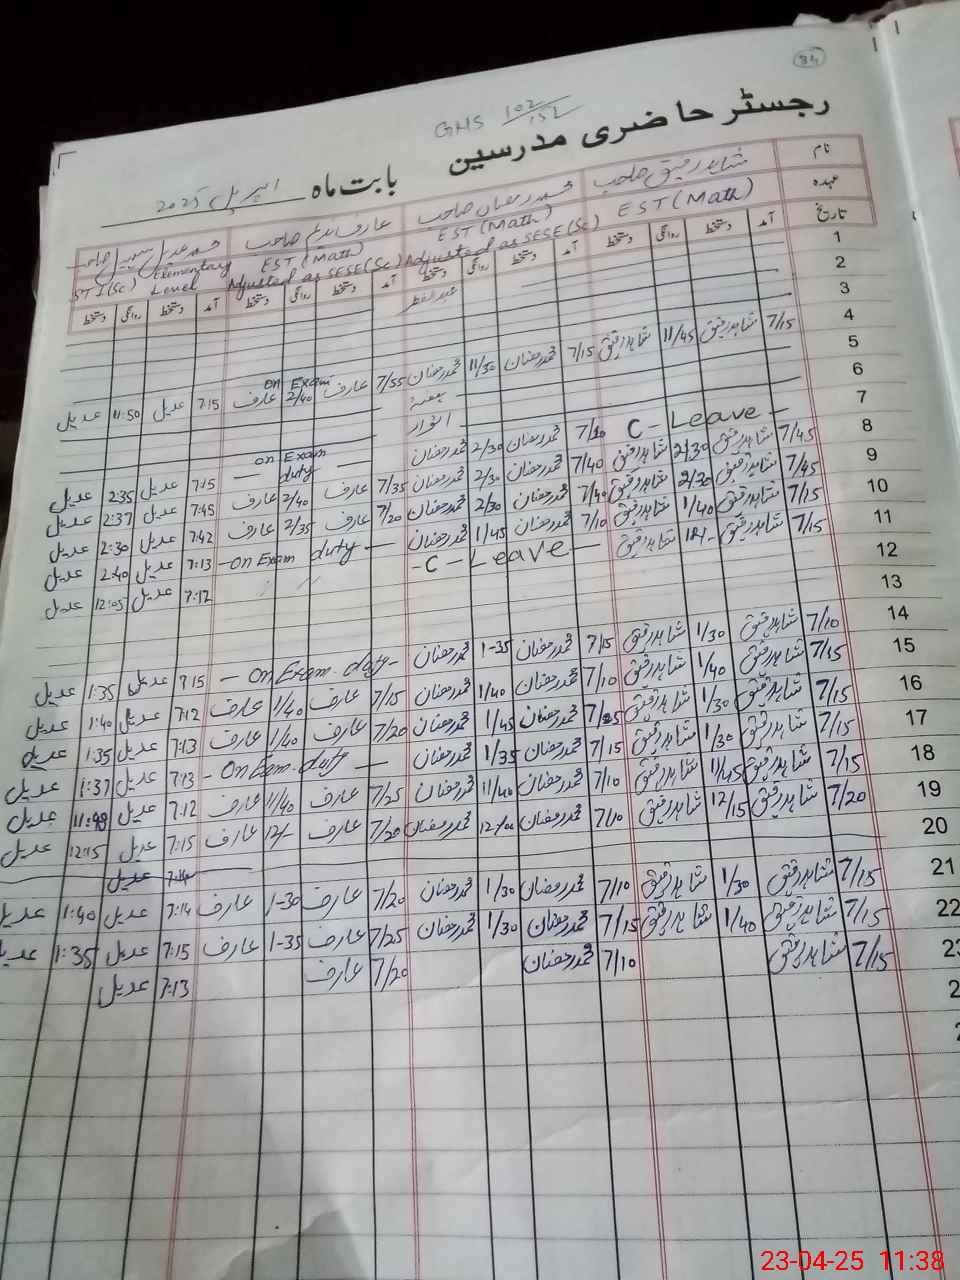 34
GHS 102/15L
رجسٹر حاضری مدرسین بابت ماہ اپریل 2025
نام شاہد رفیق صاحب محمد رمضان صاحب عارف ندیم صاحب محمد عدیل سہیل صاحب
عہدہ EST (Math) EST (Math) Adjusted as SESE(Sc) EST (Math) Adjusted as SESE(Sc) SST(Sc) Elementary Level
تاریخ آمد دستخط روانگی دستخط آمد دستخط روانگی دستخط آمد دستخط روانگی دستخط آمد دستخط روانگی دستخط
1 عید الفطر
2
3
4 7/15 شاہد رفیق 11/45 شاہد رفیق 7/15 محمد رمضان 11/50 محمد رمضان 7/55 عارف 2/40 عارف on Exam 7:15 عدیل 11:50 عدیل
5 ہفتہ
6 اتوار
7 C-Leave 7/10 محمد رمضان 2/30 محمد رمضان on Exam duty 7:15 عدیل 2:35 عدیل
8 7/45 شاہد رفیق 2/30 شاہد رفیق 7/40 محمد رمضان 2/30 محمد رمضان 7/35 عارف 2/40 عارف 7:45 عدیل 2:37 عدیل
9 7/45 شاہد رفیق 2/20 شاہد رفیق 7/40 محمد رمضان 2/30 محمد رمضان 7/20 عارف 2/35 عارف 7:42 عدیل 2:30 عدیل
10 7/15 شاہد رفیق 1/40 شاہد رفیق 7/10 محمد رمضان 1/45 محمد رمضان on Exam duty 7:13 عدیل 2:40 عدیل
11 7/15 شاہد رفیق 12/- شاہد رفیق -C-Leave- 7:12 عدیل 12:05 عدیل
12
13
14 7/10 شاہد رفیق 1/30 شاہد رفیق 7/15 محمد رمضان 1-35 محمد رمضان - on Exam duty- 7:15 عدیل 1:35 عدیل
15 7/15 شاہد رفیق 1/40 شاہد رفیق 7/10 محمد رمضان 1/40 محمد رمضان 7/15 عارف 1/40 عارف 7:12 عدیل 1:40 عدیل
16 7/15 شاہد رفیق 1/30 شاہد رفیق 7/25 محمد رمضان 1/45 محمد رمضان 7/20 عارف 1/40 عارف 7:13 عدیل 1:35 عدیل
17 7/15 شاہد رفیق 1/30 شاہد رفیق 7/15 محمد رمضان 1/35 محمد رمضان - On Exam duty - 7:13 عدیل 1:37 عدیل
18 7/15 شاہد رفیق 11/45 شاہد رفیق 7/10 محمد رمضان 11/40 محمد رمضان 7/25 عارف 11/40 عارف 7:12 عدیل عدیل
19 7/20 شاہد رفیق 12/15 شاہد رفیق 7/10 محمد رمضان محمد رمضان 7/20 عارف 12/- عارف 7:15 عدیل 12:15 عدیل
20 7:14 عدیل
21 7/15 شاہد رفیق 1/30 شاہد رفیق 7/10 محمد رمضان 1/30 محمد رمضان 7/20 عارف 1-30 عارف 7:14 عدیل 1:40 عدیل
22 7/15 شاہد رفیق 1/40 شاہد رفیق 7/15 محمد رمضان 1/30 محمد رمضان 7/25 عارف 1-35 عارف 7:15 عدیل 1:35 عدیل
23 7/15 شاہد رفیق 7/10 محمد رمضان 7/20 عارف 7:13 عدیل
2
2
23-04-25 11:38